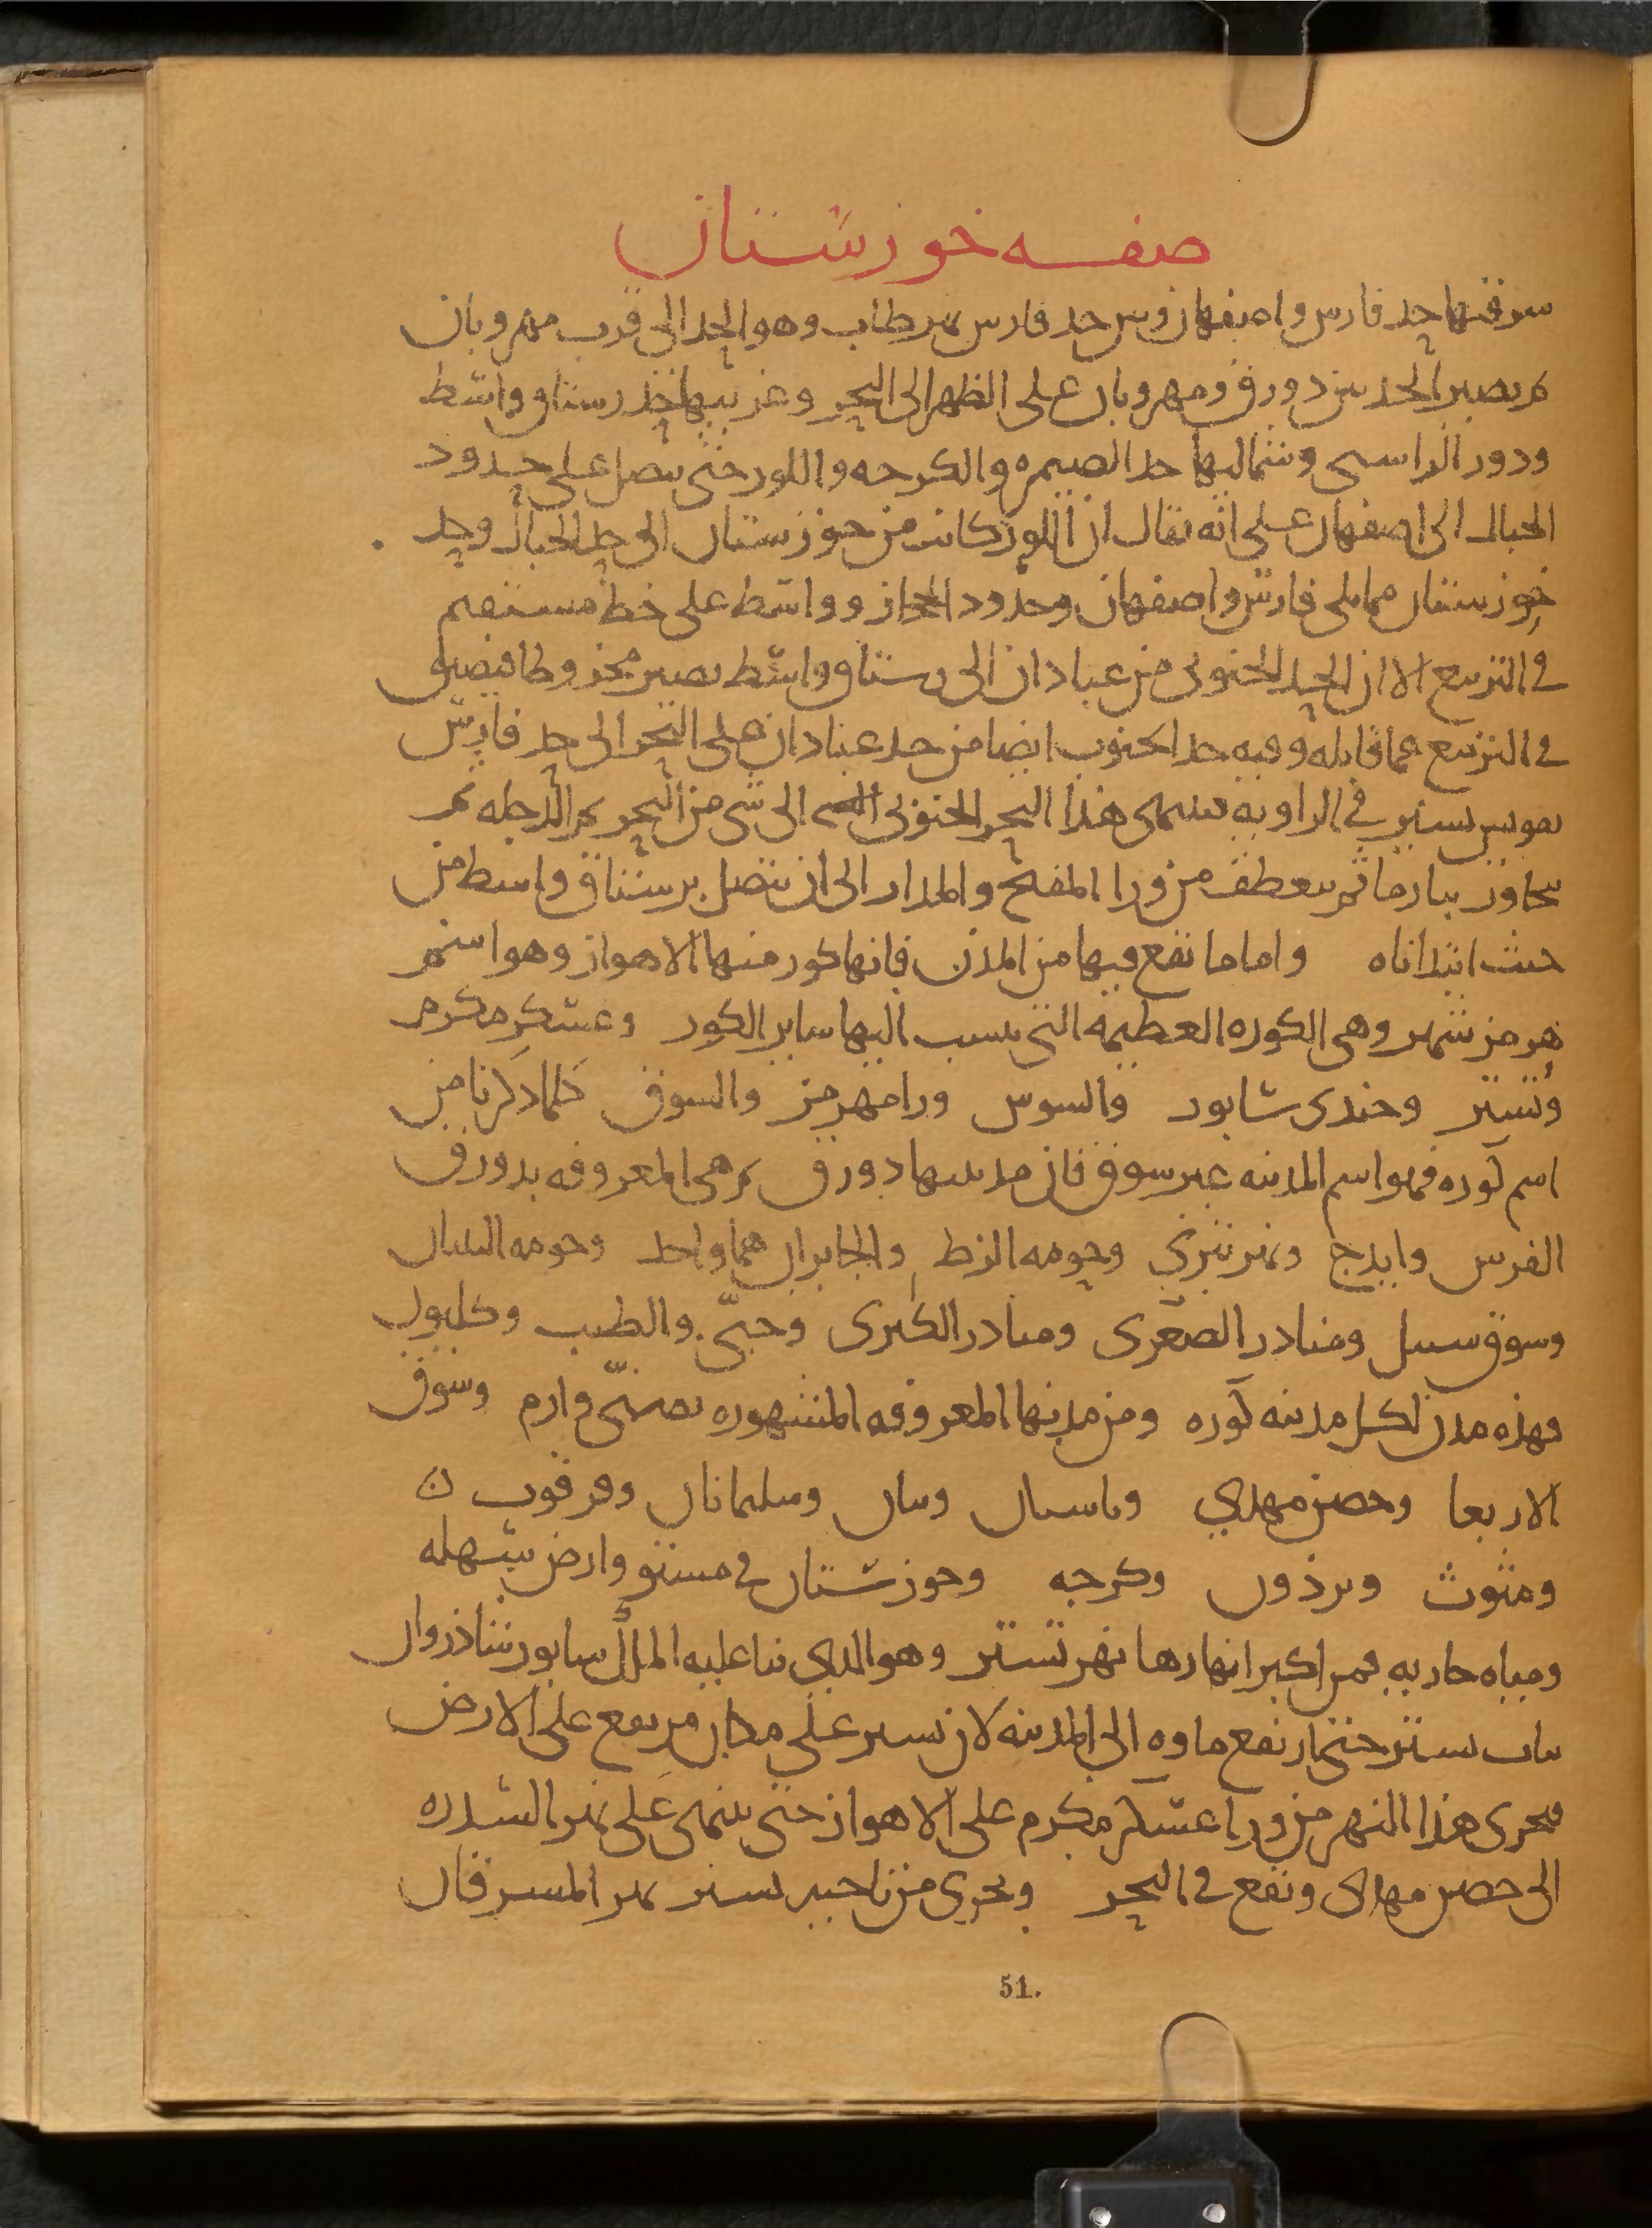 صفه خوزستان
شرقيها حد فارس واصفهان وبين حد فارس نهر طاب وهو الحد الى قرب مهروبان
ثم يصير الحد بين دورق ومهروبان على الظهر الى البحر وغربيها حد رستاق واسط
ودور الراسبى وشماليها حد الصيمره والكرجه واللور حتى يتصل على حدود
الجبال الى اصفهان على انه يقال ان اللور كانت من خوزستان الى حد الجبال وحد
خوزستان مما يلى فارس واصفهان وحدود الجبال وواسط على خط مستقيم
فى التربيع الا ان الحد الجنوبى من عبادان الى رستاق واسط يصير مخروطا فيضيق
فى التربيع عما قابله وفيه حد الجنوب ايضا من حد عبادان على البحر الى حد فارس
تقويس يسير فى الزاويه ينتهى هذا البحر الجنوبى الى شى من البحر ثم الدجله ثم
يجاوز بيان ثم ينعطف من ورا المفتح والمذار الى ان يتصل برستاق واسط من
حيث ابتداناه واما ما يقع فيها من المدن فانها كور منها الاهواز وهو اسم
هرمز شهر وهى الكوره العظيمه التى ينسب اليها ساير الكور وعسكر مكرم
وتستر وجندى سابور والسوس ورامهرمز والسوق كلما ذكرنا من
اسم كوره فهو اسم المدينه غير سوق فان مدينتها دورق ثم هى المعروفه بدورق
الفرس وايذج ونهر تيرى وحومه الزط والجايزان هما واحد وحومه السان
وسوق سنبل ومناذر الصغرى ومناذر الكبرى وجبّى والطيب وكليوان
فهذه مدن لكل مدينه كوره ومن مدنها المعروفه المشهوره بصنّى وازم وسوق
الاربعا وحصن مهدى وباسيان وبيان وسليمانان وقرقوب ن
ومتوث وبرذون وكرجه وخوزستان فى مستو وارض سهله
ومياه جاريه فمن اكبر انهارها نهر تستر وهو الذى بنا عليه الملك سابور شاذروان
بباب تستر حتى ارتفع ماوه الى المدينه لان تستر على مكان مرتفع على الارض
فيجرى هذا النهر من ورا عسكر مكرم على الاهواز حتى ينتهى على نهر السدره
الى حصن مهدى ويقع فى البحر ويجرى من ناحيه تستر نهر المسرقان
51.